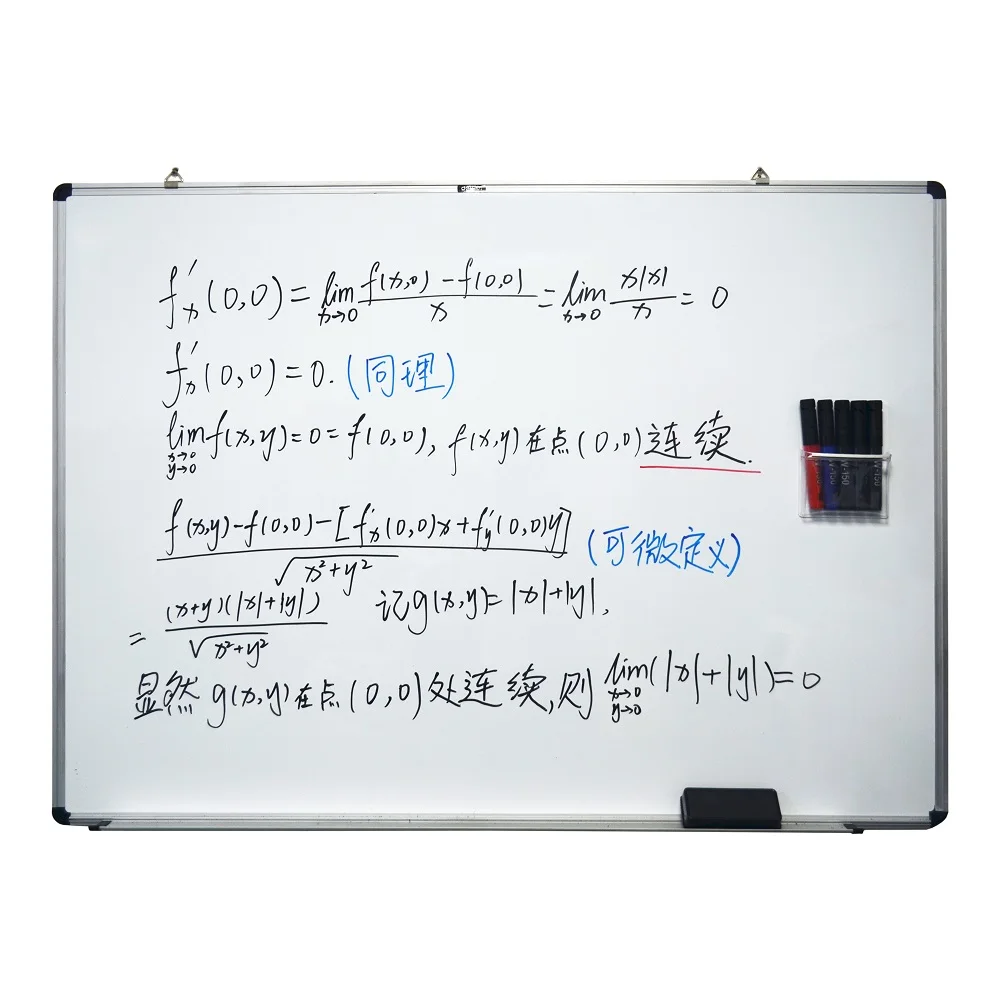 f'x(0,0) = lim x→0 (f(x,0) - f(0,0))/x = lim x→0 x|x|/x = 0
f'x(0,0) = 0. (同理)
lim x→0 y→0 f(x,y) = 0 = f(0,0), f(x,y)在点(0,0)连续.
(f(x,y) - f(0,0) - [f'x(0,0)x + f'y(0,0)y])/√(x²+y²) (可微定义)
= (x+y)(|x|+|y|)/√(x²+y²) 记g(x,y) = |x|+|y|,
显然g(x,y)在点(0,0)处连续,则 lim x→0 y→0 (|x|+|y|) = 0
V-150
V-150
V-150